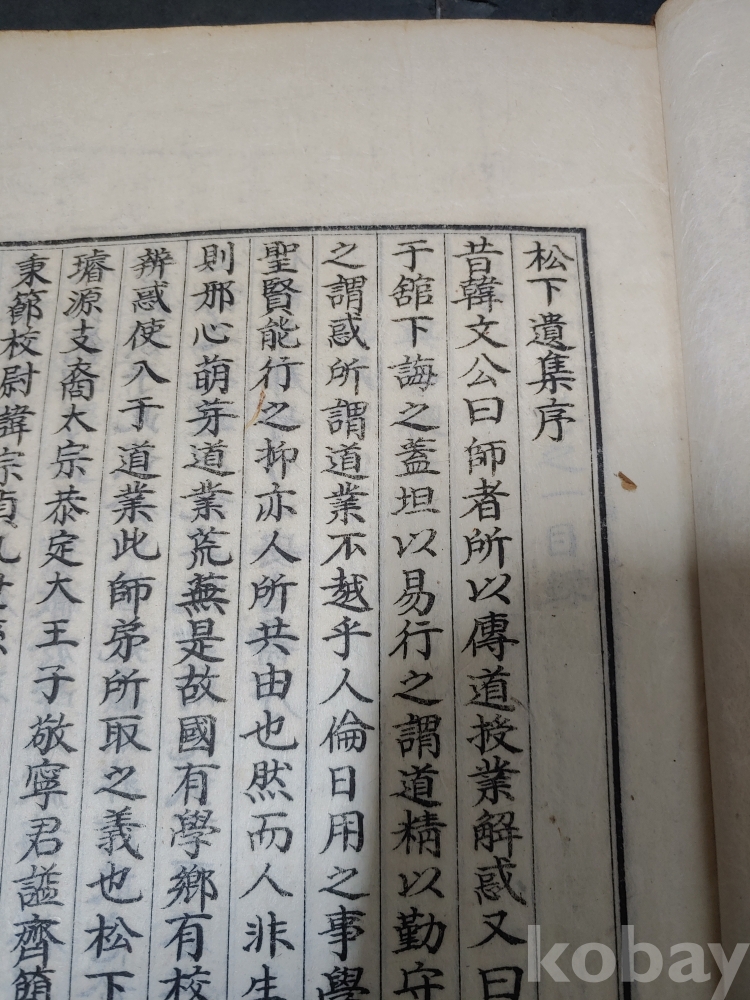 松下遺集序
昔韓文公曰師者所以傳道授業解惑又曰
于舘下誨之蓋坦以易行之謂道精以勤守
之謂惑所謂道業不越乎人倫日用之事學
聖賢能行之抑亦人所共由也然而人非生
則邪心萌芽道業荒蕪是故國有學鄉有校
辨惑使入于道業此師弟所取之義也松下
璿源支裔太宗恭定大王子敬寧君謚齊簡
秉節校尉諱宗貞
kobay